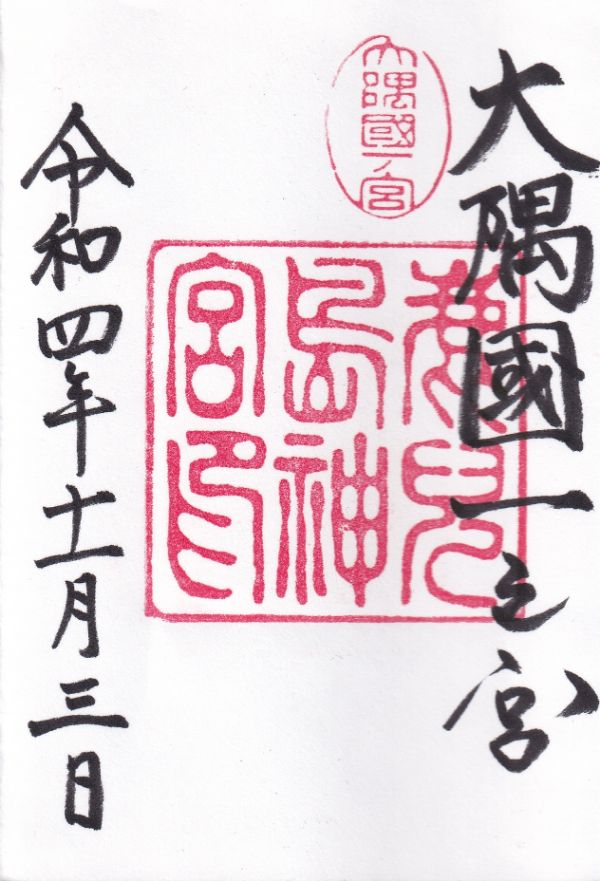 大隅國一之宮
大隅國一ノ宮
鹿兒
島神
宮印
令和四年十一月三日